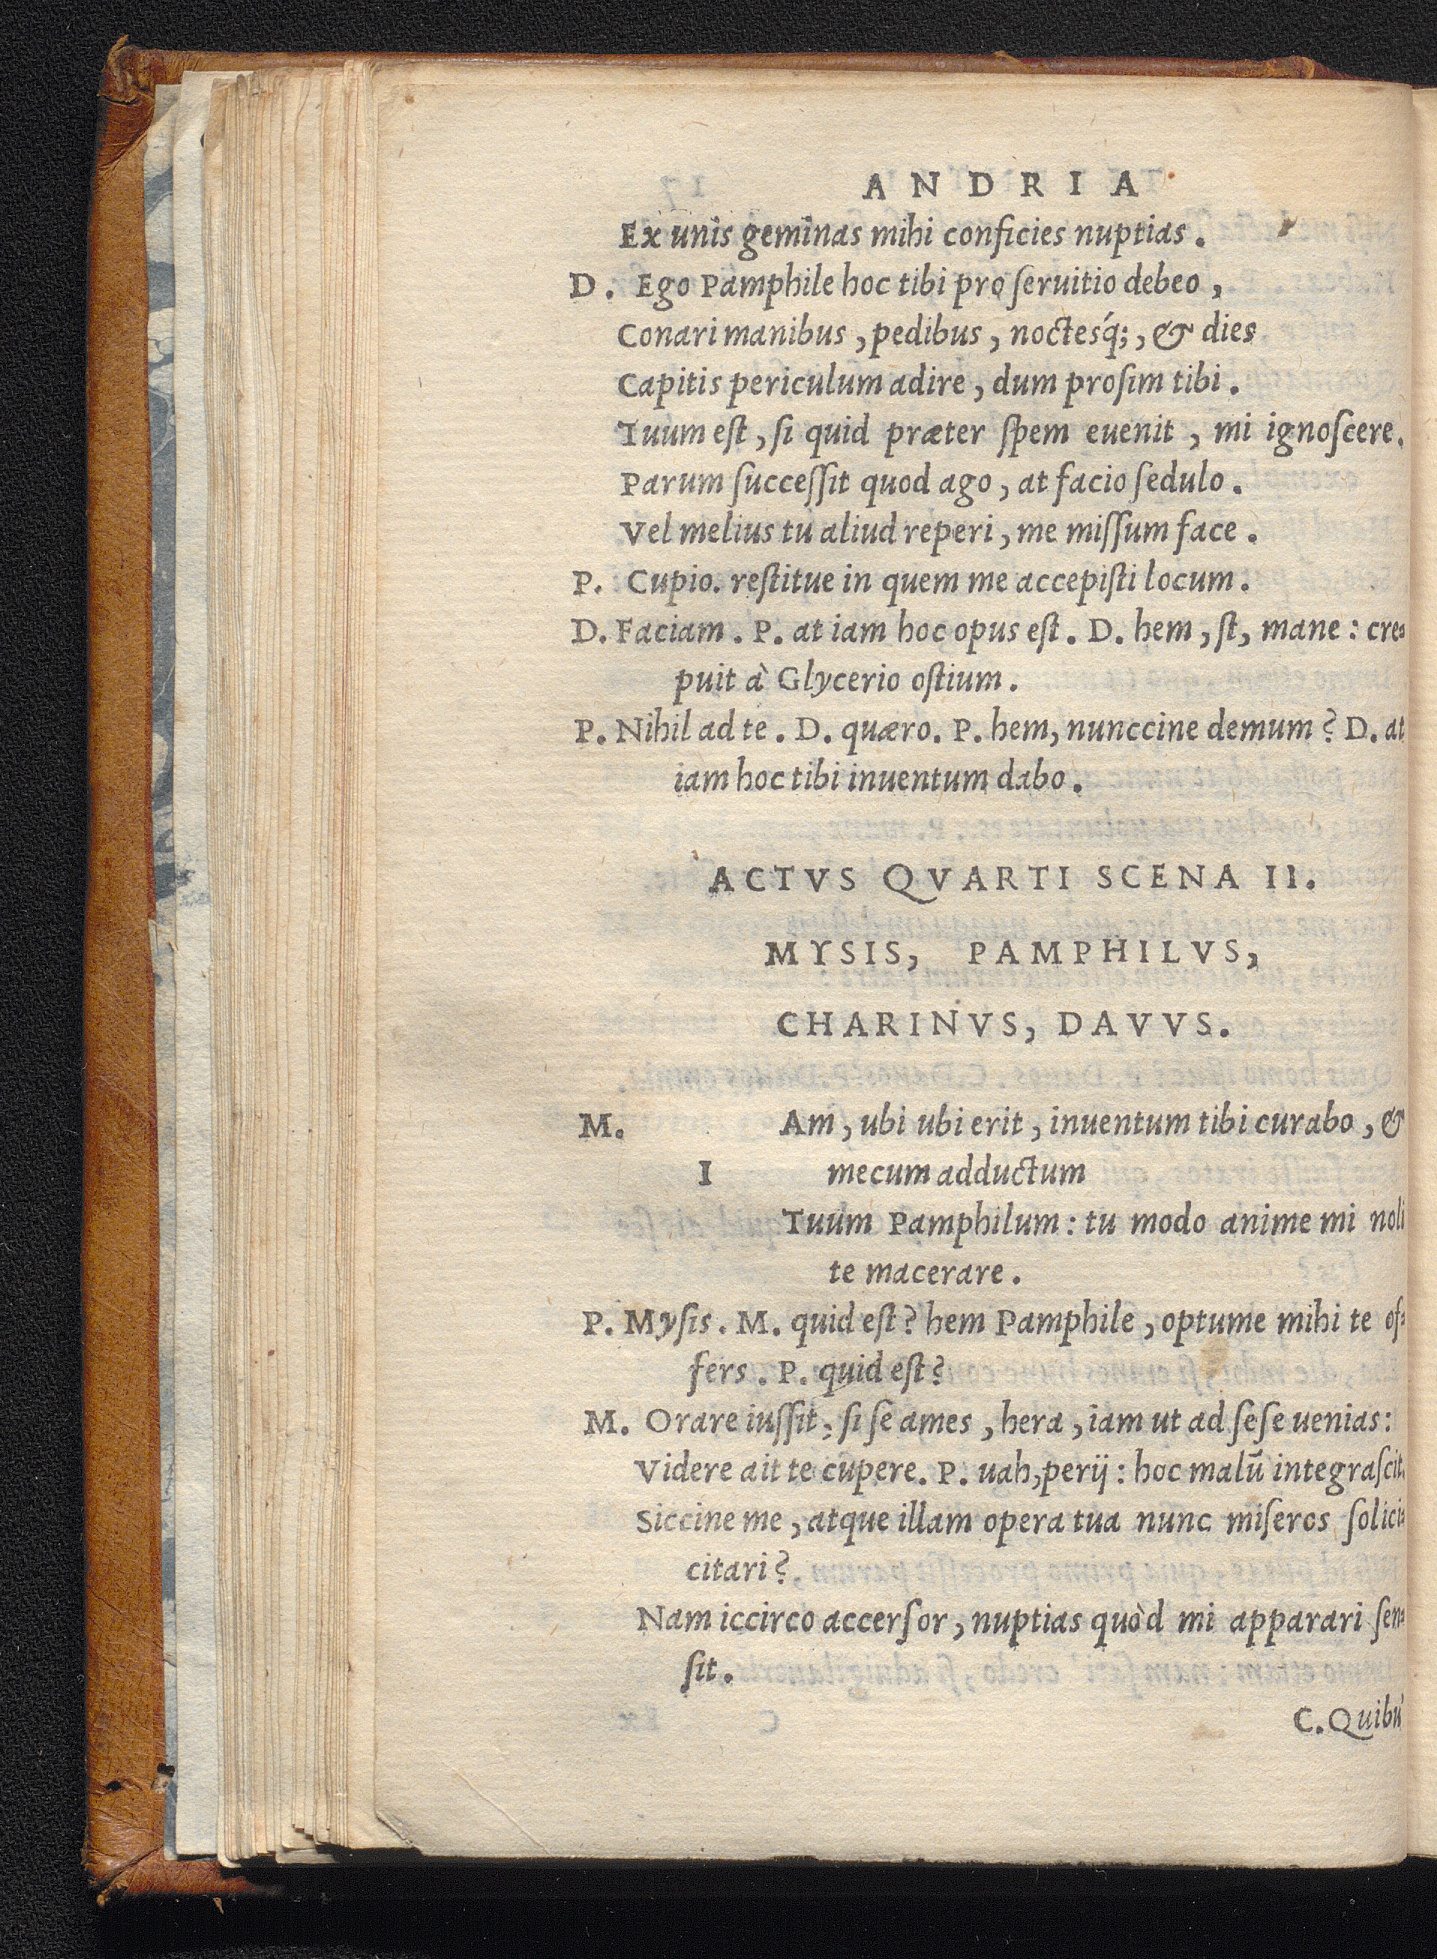 ANDRIA
Ex unis geminas mihi conficies nuptias.
D. Ego Pamphile hoc tibi pro ſeruitio debeo,
Conari manibus, pedibus, noctesq́;, & dies
Capitis periculum adire, dum proſim tibi.
Tuum eſt, ſi quid præter ſpem euenit, mi ignoſcere.
Parum ſucceſſit quod ago, at facio ſedulo.
Vel melius tu aliud reperi, me miſſum face.
P. Cupio. reſtitue in quem me accepiſti locum.
D. Faciam. P. at iam hoc opus eſt. D. hem, ſt, mane: cre-
puit à Glycerio oſtium.
P. Nihil ad te. D. quæro. P. hem, nunccine demum? D. at
iam hoc tibi inuentum dabo.
ACTVS QVARTI SCENA II.
MYSIS, PAMPHILVS,
CHARINVS, DAVVS.
M. Am, ubi ubi erit, inuentum tibi curabo, &
I mecum adductum
Tuum Pamphilum: tu modo anime mi noli
te macerare.
P. Myſis. M. quid eſt? hem Pamphile, optume mihi te of-
fers. P. quid eſt?
M. Orare iuſſit, ſi ſe ames, hera, iam ut ad ſeſe uenias:
Videre ait te cupere. P. uah, perij: hoc malū integraſcit.
Siccine me, atque illam opera tua nunc miſeros ſolici-
citari?
Nam iccirco accerſor, nuptias quòd mi apparari ſen-
ſit.
C. Quibu